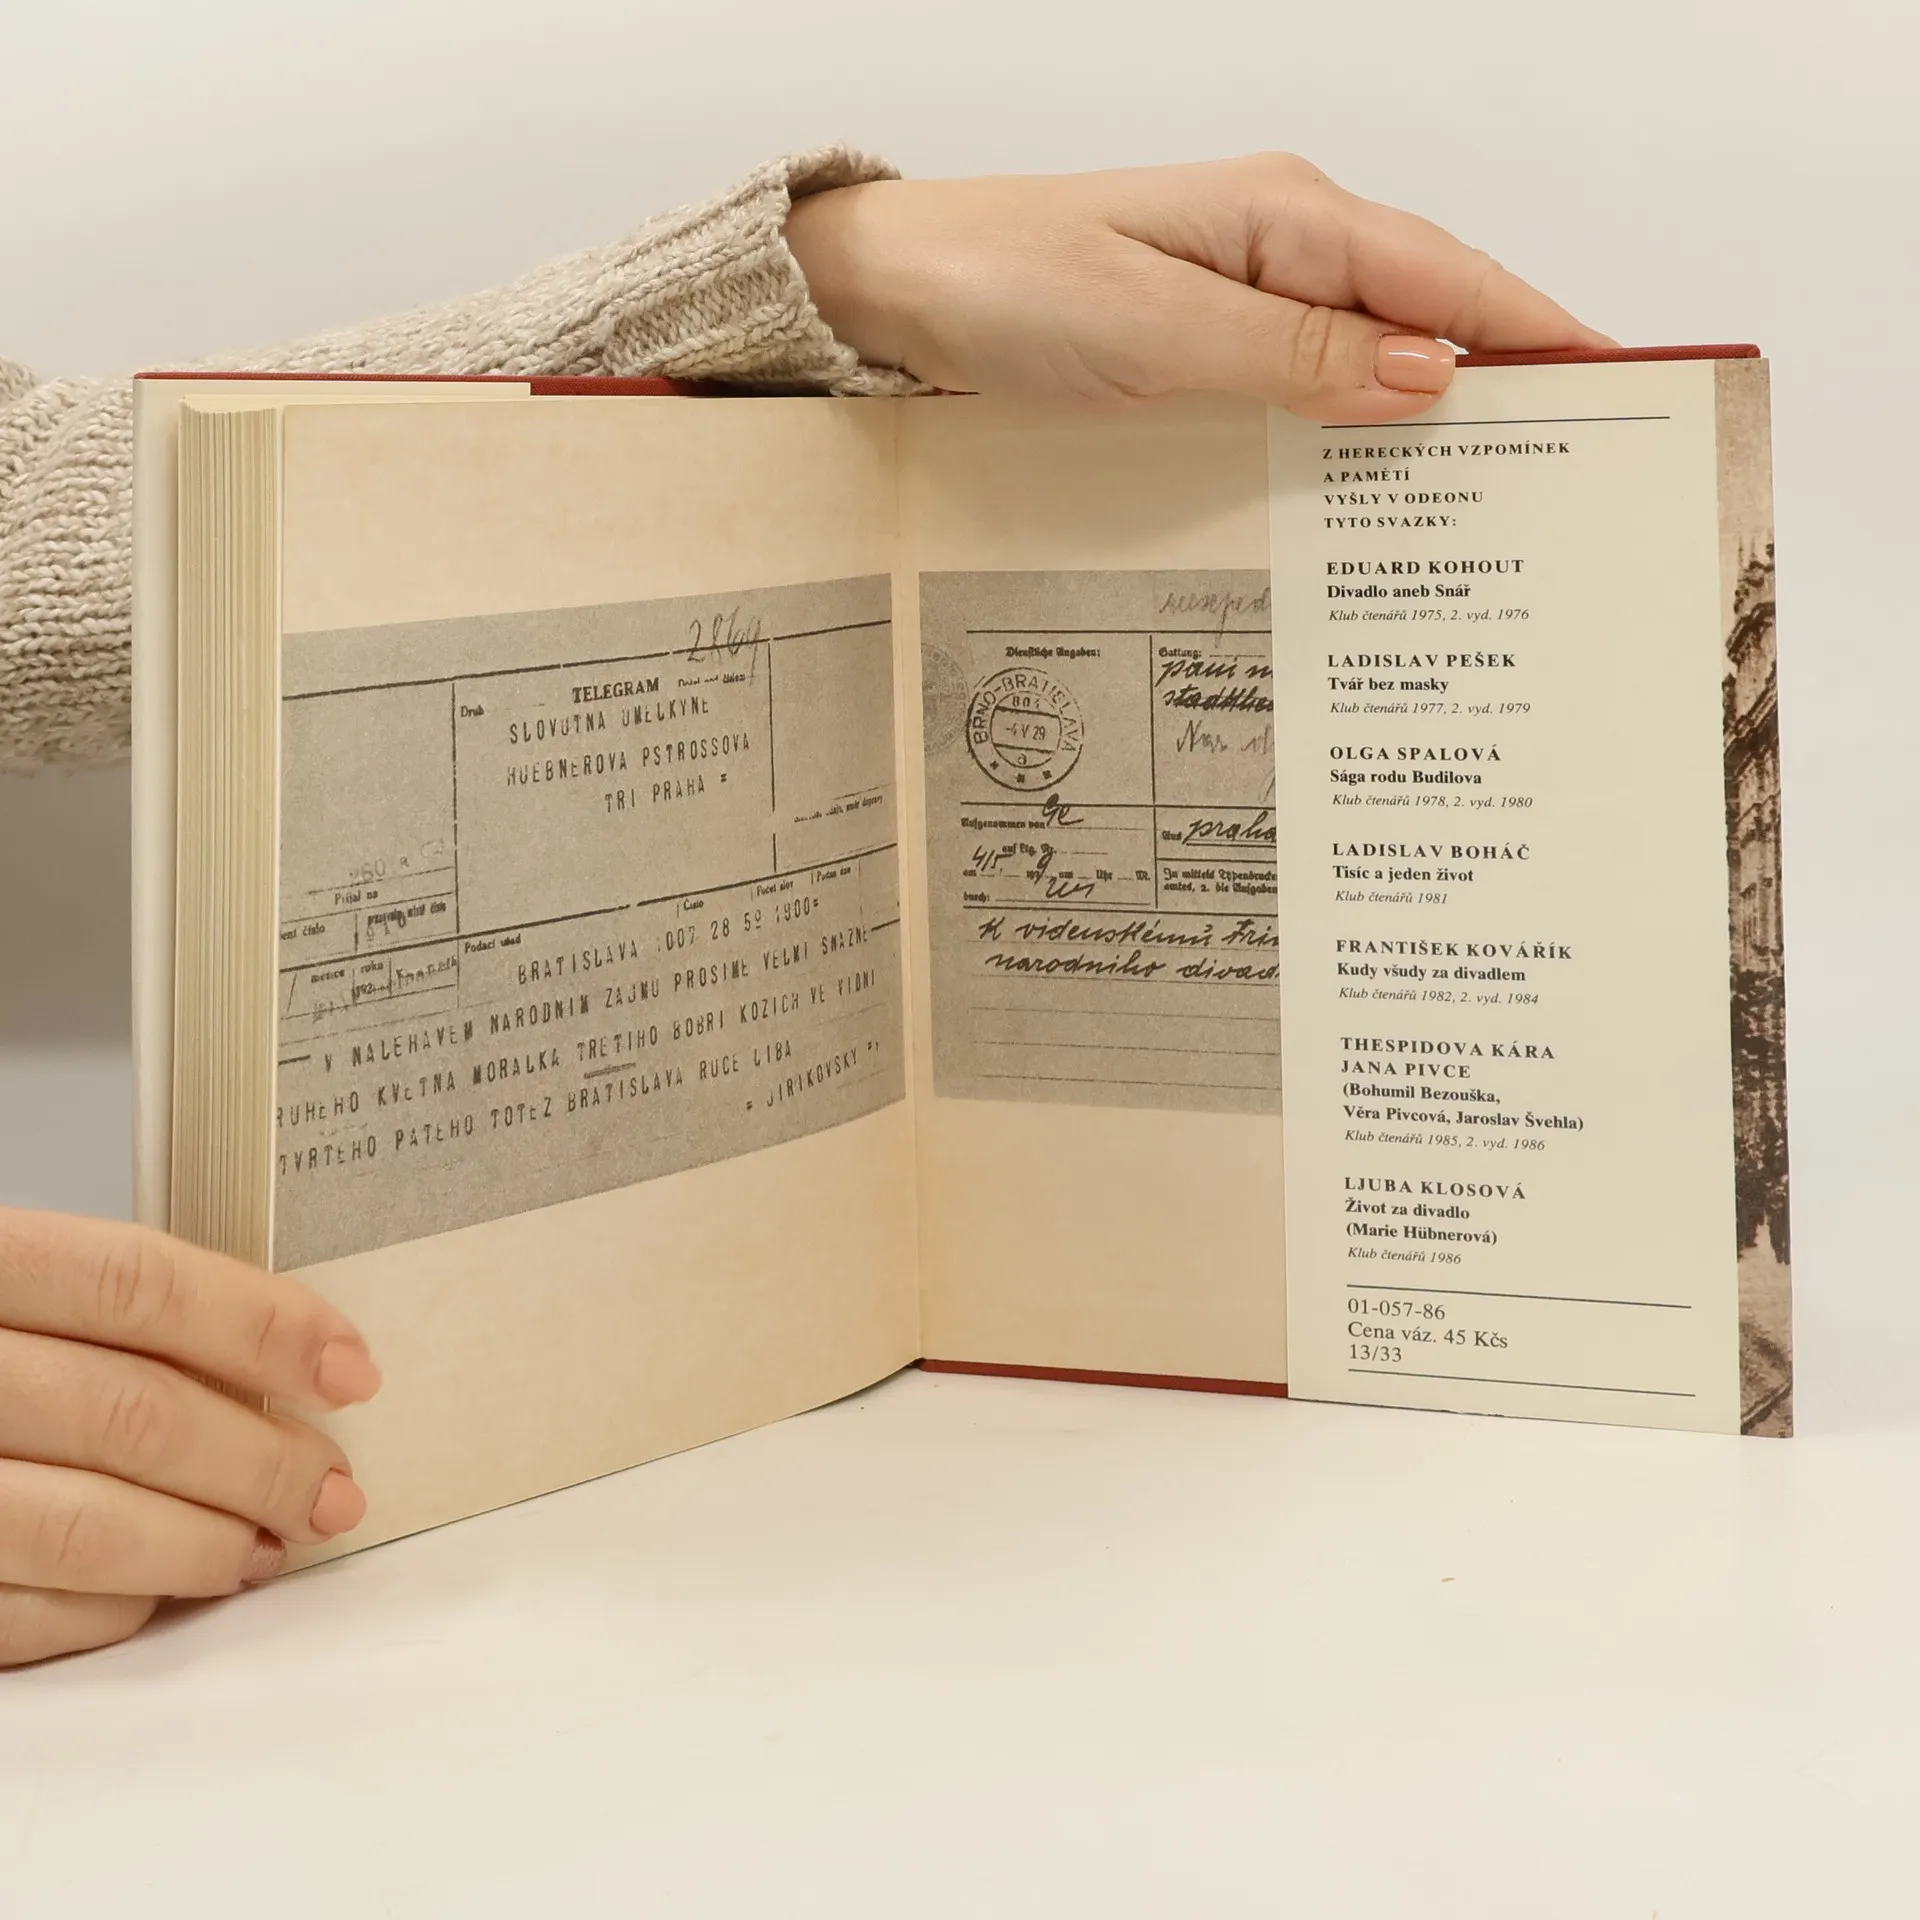 2869
TELEGRAM
Druh
SLOVUTNA UMELKYNE
HUEBNEROVA PSTROSSOVA
TRI PRAHA =
Přijal na
číslo
910
měsíce
roku
192
Podací úřad
Číslo
Počet slov
BRATISLAVA 1007 28 59 1900=
V NALEHAVEM NARODNIM ZAJMU PROSIME VELMI SNAZNE
RUHEHO KVETNA MORALKA TRETIHO BOBRI KOZICH VE VIDNI
TVRTEHO PATEHO TOTEZ BRATISLAVA RUCE LIBA
= JIRIKOVSKY =,
Dienstliche Angaben:
Gattung:
paní
BRNO-BRATISLAVA
-4 V 29
Nar
Aufgenommen von
Aus praha
auf Ltg. Nr.
4/5
am
um
Uhr
M.
durch:
In mittels Typendrucke
amtes, 2. die Aufgaben
K videnskému
narodniho divad
Z HERECKÝCH VZPOMÍNEK
A PAMĚTÍ
VYŠLY V ODEONU
TYTO SVAZKY:
EDUARD KOHOUT
Divadlo aneb Snář
Klub čtenářů 1975, 2. vyd. 1976
LADISLAV PEŠEK
Tvář bez masky
Klub čtenářů 1977, 2. vyd. 1979
OLGA SPALOVÁ
Sága rodu Budilova
Klub čtenářů 1978, 2. vyd. 1980
LADISLAV BOHÁČ
Tisíc a jeden život
Klub čtenářů 1981
FRANTIŠEK KOVÁŘÍK
Kudy všudy za divadlem
Klub čtenářů 1982, 2. vyd. 1984
THESPIDOVA KÁRA
JANA PIVCE
(Bohumil Bezouška,
Věra Pivcová, Jaroslav Švehla)
Klub čtenářů 1985, 2. vyd. 1986
LJUBA KLOSOVÁ
Život za divadlo
(Marie Hübnerová)
Klub čtenářů 1986
01-057-86
Cena váz. 45 Kčs
13/33